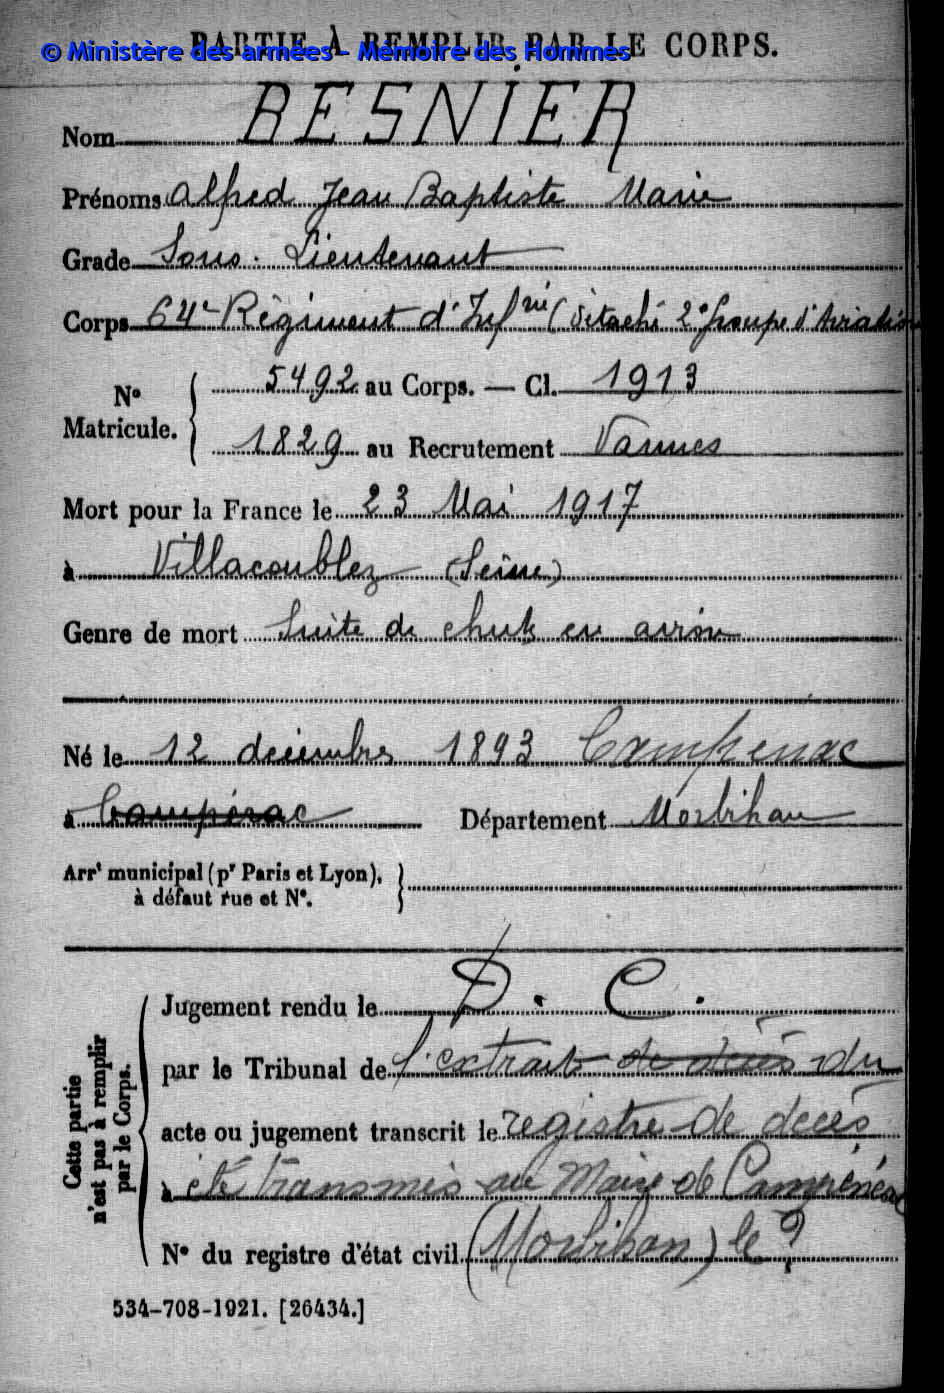 PARTIE À REMPLIR PAR LE CORPS.
© Ministère des armées - Mémoire des Hommes
Nom BESNIER
Prénoms Alfred Jean Baptiste Marie
Grade Sous-Lieutenant
Corps 64e Régiment d'Infrie (détaché 2e groupe d'Aviation
No Matricule. { 5492 au Corps. — Cl. 1913
1829 au Recrutement Vannes
Mort pour la France le 23 Mai 1917
à Villacoublez (Seine)
Genre de mort Suite de chute en avion
Né le 12 décembre 1893 Campenéac
à Campérac Département Morbihan
Arrt municipal (pr Paris et Lyon), à défaut rue et No. }
Cette partie n'est pas à remplir par le Corps.
Jugement rendu le D. C.
par le Tribunal de l'extrait de décès du
acte ou jugement transcrit le registre de décès
à été transmis au Maire de Campénéac
No du registre d'état civil (Morbihan) le ?
534-708-1921. [26434.]